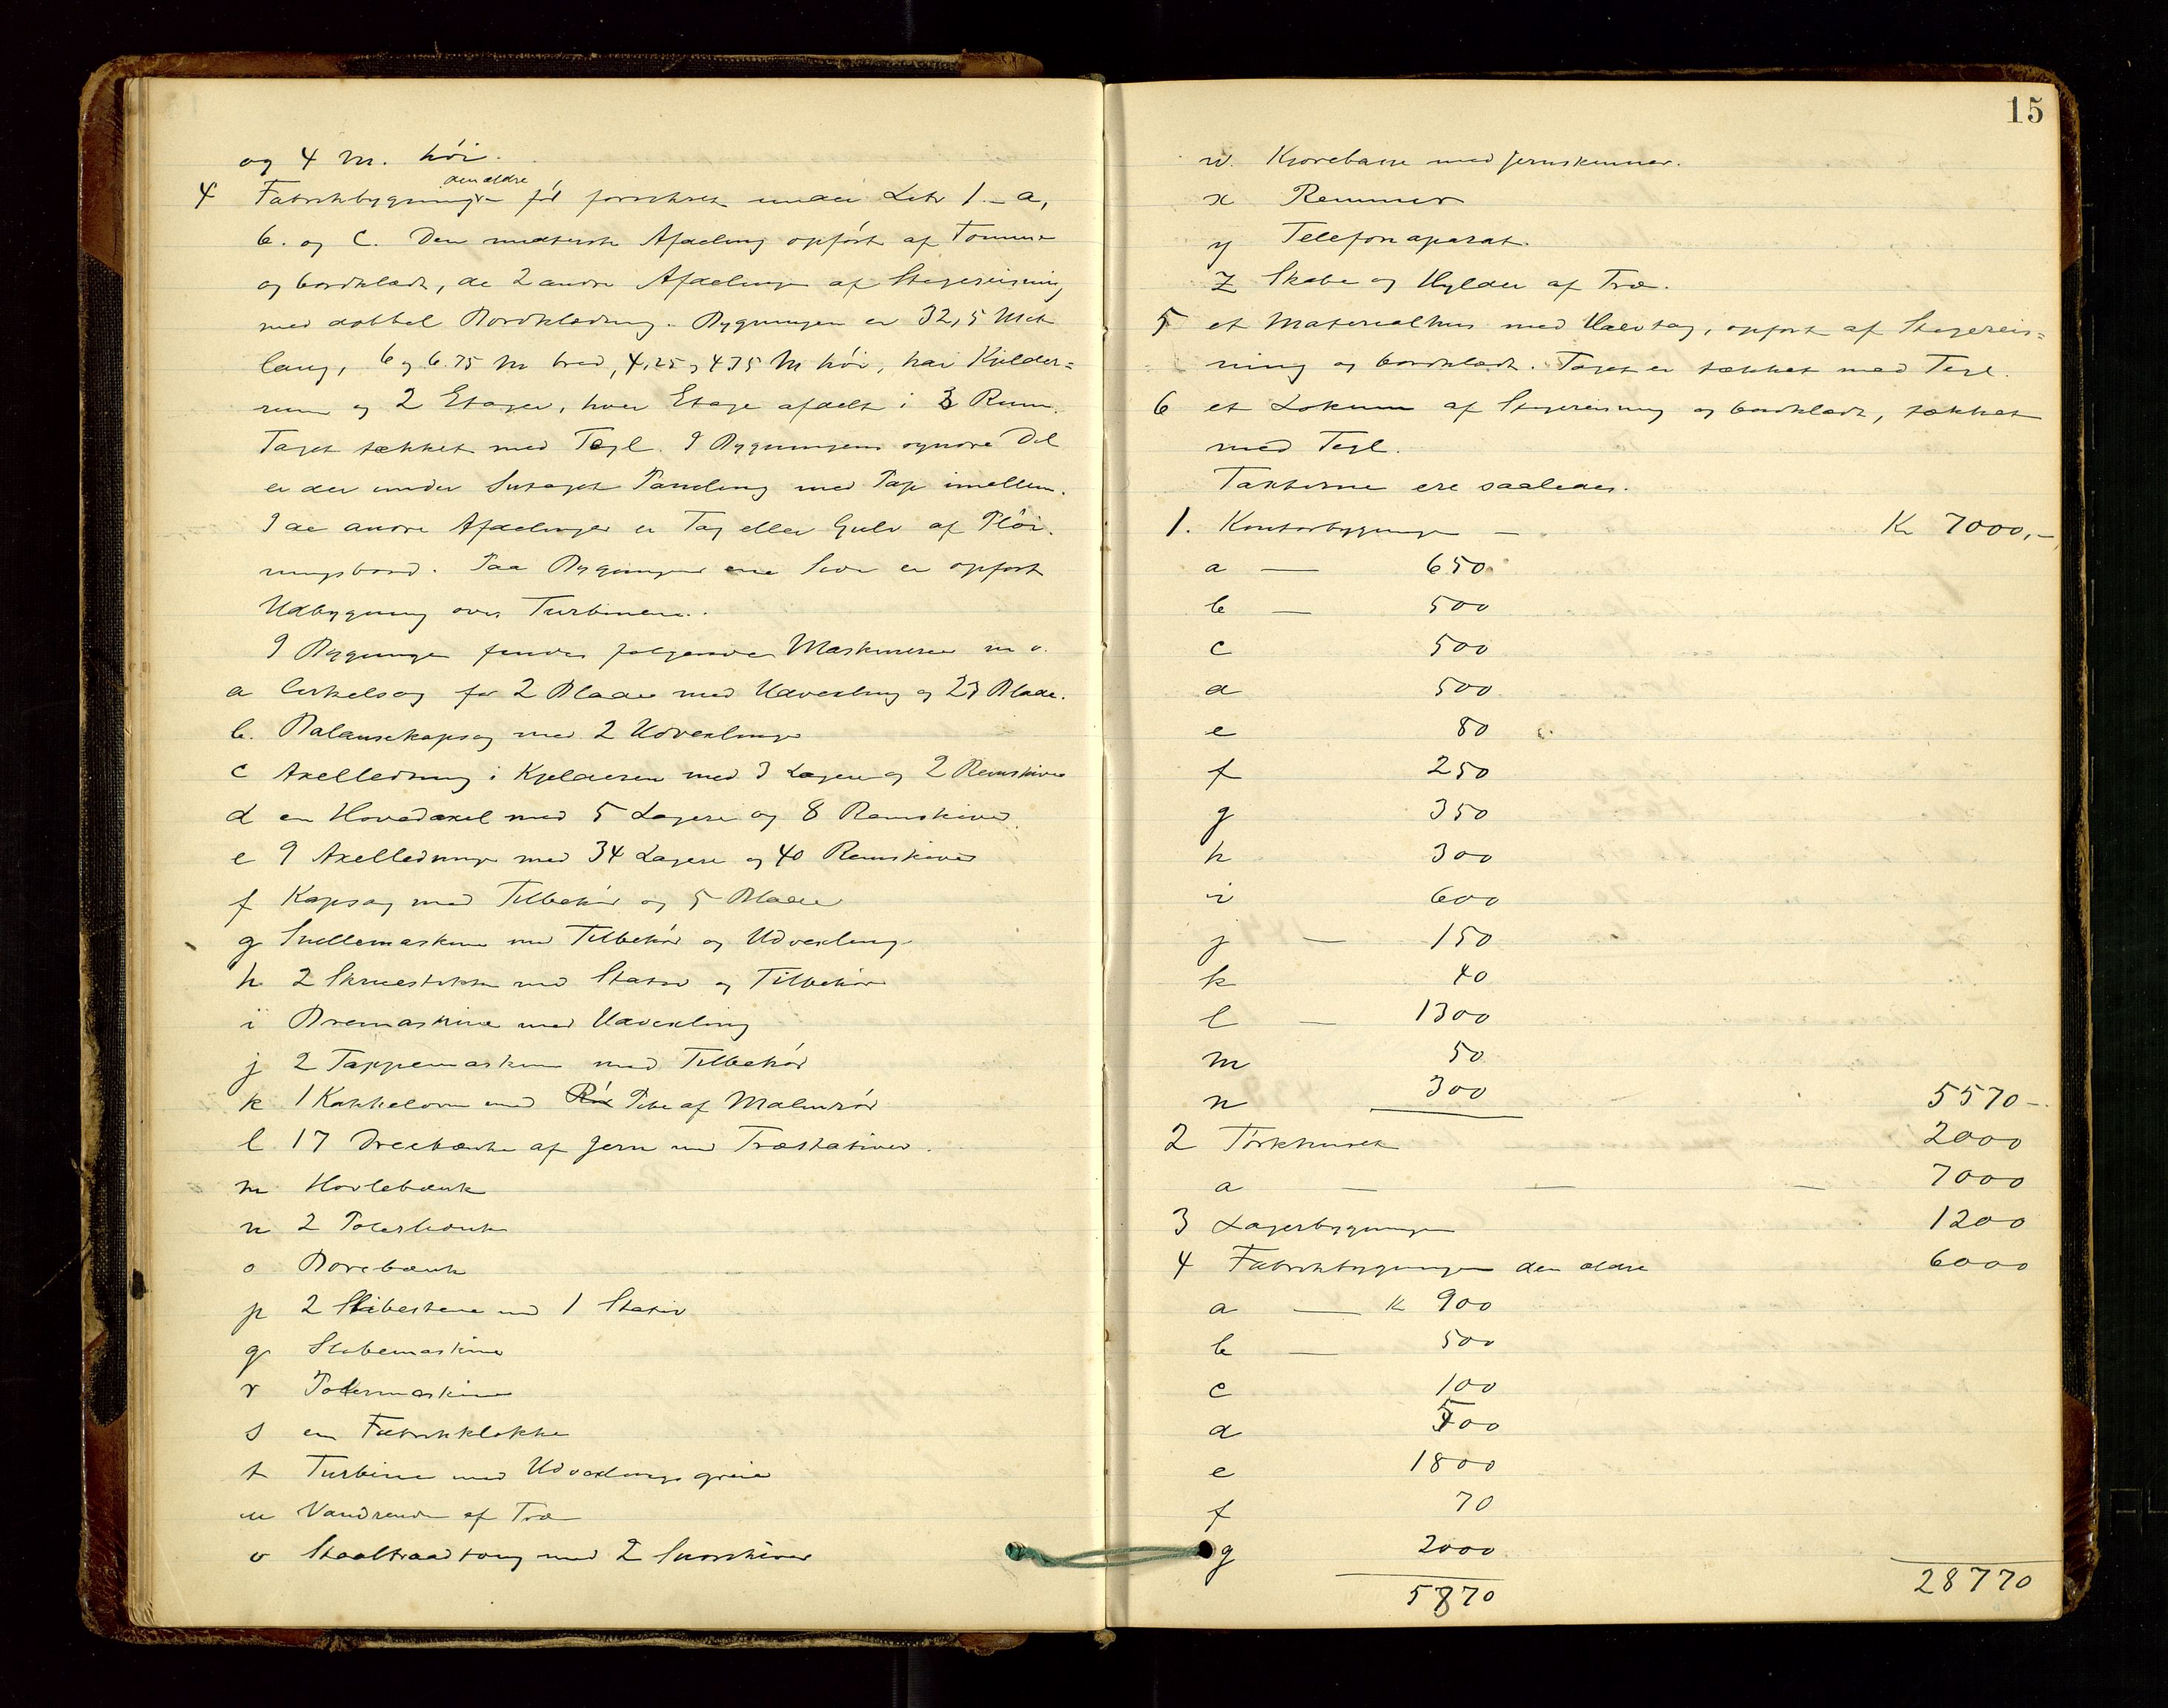 og 4 M. høi.
den ældre
4 Fabrikbygningen før forsikret under Litr 1_a,
b. og c. Den midterste Afdeling opført af Tømmer
og bordklædt, de 2 andre Afdelinger af Stagereisning
med dobbel Bordklædning. Bygningen er 32,5 Met
lang, 6 og 6.75 M bred, 4,25 og 4.75 M høi, har Kjelder=
rum og 2 Etager, hver Etage afdelt i 3 Rum.
Taget tækket med Tegl. I Bygningens øndre Del
er der under Sutaget Paneling med Pap imellem.
I de andre Afdelinger er Tag eller Gulv af Pløi-
ningsbord. Paa Bygningens ene Side er opført
Udbygning over Turbinen.
I Bygningen findes følgende Maskinerier m v.
a Cirkelsag for 2 Blade med Udvexling og 23 Blade.
b. Balansekapsag med 2 Udvexlinger
c Axelledning i Kjelderen med 3 Lagere og 2 Remskiver
d en Hovedaxel med 5 Lagere og 8 Remskiver
e 9 Axelledninger med 34 Lagere og 40 Remskiver
f Kapsag med Tilbehør og 5 Blade
g Snellemaskine med Tilbehør og Udvexling
h 2 Skruestikker med Stativ og Tilbehør
i Boremaskine med Udvexling
j 2 Tappemaskiner med Tilbehør
k 1 Kakkelovn med Rör Pibe af Malmrør
l 17 Dreiebænke af Jern med Træstativer.
m Høvlebænk
n 2 Polerbænke
o Borebænk
p 2 Slibestene med 1 Stativ
q Slibemaskine
r Polermaskine
s en Fabrikklokke
t Turbine med Udvexlings greie
u Vandrende af Træ
v Staaltraadtoug med 2 Snorskiver
15
w. Kjørebane med Jernskinner.
x Remmer
y Telefonaparat.
z Skabe og Hylder af Træ.
5 et Materialhus med Halvtag, opført af Stagereis=
ning og bordklædt. Taget er tækket med Tegl.
6 et Lokum af Stagereisning og bordklædt, tækket
med Tegl.
Taxterne ere saaledes.
1. Kontorbygningen — Kr 7000,—
a — 650
b — 500
c 500
d 500
e 80
f 250
g 350
h 300
i 600
j — 150
k 40
l — 1300
m 50
n 300 5570—
2 Tørkhuset 2000
a — — — 7000
3 Lagerbygningen 1200
4 Fabrikbygningen den ældre 6000
a — K 900
b — 500
c 100
d 500
e 1800
f 70
g 2000
5870 28770